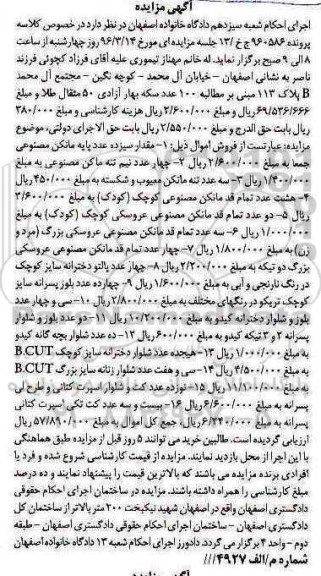 آگهی مزایده
اجرای احکام شعبه سیزدهم دادگاه خانواده اصفهان در نظر دارد در خصوص کلاسه
پرونده ۹۶۰۵۸۶ ج خ /۱۳ جلسه مزایده ای مورخ ۹۶/۳/۱۴ روز چهارشنبه از ساعت
۸ الی ۹ صبح برگزار نماید. له خانم مهناز تیموری علیه آقای فرزاد کچوئی فرزند
ناصر به نشانی اصفهان - خیابان آل محمد - کوچه نگین - مجتمع آل محمد
B پلاک ۱۱۳ مبنی بر مطالبه ۱۰۰ عدد سکه بهار آزادی ۵۰ مثقال طلا و مبلغ
۶۹/۵۳۶/۶۶۶ ریال و مبلغ ۲/۶۰۰/۰۰۰ ریال هزینه کارشناسی و مبلغ ۳۸۰/۰۰۰
ریال بابت حق الدرج و مبلغ ۲/۵۵۰/۰۰۰ ریال بابت حق الاجرای دولتی، موضوع
مزایده: عبارتست از فروش اموال ذیل: ۱- مقدار سیزده عدد پایه مانکن مصنوعی
جمعا به مبلغ ۲/۶۰۰/۰۰۰ ریال ۲- چهار عدد نیم تنه ماکن مصنوعی به مبلغ
۱/۴۰۰/۰۰۰ ریال ۳- سه عدد تنه مانکن معیوب و شکسته به مبلغ ۴۵۰/۰۰۰ ریال
۴- هشت عدد تمام قد مانکن مصنوعی کوچک (کودک) به مبلغ ۳/۶۰۰/۰۰۰
ریال ۵- دو عدد تمام قد مانکن مصنوعی عروسکی کوچک (کودک) به مبلغ
۱/۰۰۰/۰۰۰ ریال ۶- سه عدد تمام قد مانکن مصنوعی عروسکی بزرگ (مرد و
زن) به مبلغ ۱/۸۰۰/۰۰۰ ریال ۷- چهار عدد تمام قد مانکن مصنوعی عروسکی
بزرگ دو تیکه به مبلغ ۲/۲۰۰/۰۰۰ ریال ۸- چهار عدد پالتو دخترانه سایز کوچک
در رنگ نارنجی و آبی به مبلغ ۱/۶۰۰/۰۰۰ ریال ۹- چهارده عدد بلوز پسرانه سایز
کوچک تریکو در رنگهای مختلف به مبلغ ۲/۸۰۰/۰۰۰ ریال ۱۰- سی و چهار عدد
بلوز و شلوار دخترانه کیدو به مبلغ ۱۰/۲۰۰/۰۰۰ ریال ۱۱- دو عدد بلوز و شلوار
پسرانه ۲ و ۳ تیکه کیدو به مبلغ ۶۰۰/۰۰۰ ریال ۱۲- ده عدد شلوار بچه گانه کیدو
به مبلغ ۱/۰۰۰/۰۰۰ ریال ۱۳- هیجده عدد شلوار دخترانه سایز کوچک B.CUT
به مبلغ ۴/۵۰۰/۰۰۰ ریال ۱۴- سی و هفت عدد شلوار زنانه سایز بزرگ B.CUT
به مبلغ ۱۱/۱۰۰/۰۰۰ ریال ۱۵- نوزده عدد کت و شلوار اسپرت کتانی و طرح لی
پسرانه به مبلغ ۶/۶۰۰/۰۰۰ ریال ۱۶- بیست و سه عدد کت تکی اسپرت کتانی
پسرانه به مبلغ ۶/۴۴۰/۰۰۰ ریال، جمع کل اموال به مبلغ ۵۷/۸۹۰/۰۰۰ ریال
ارزیابی گردیده است. طالبین خرید می توانند ۵ روز قبل از مزایده طبق هماهنگی
با این اجرا از محل بازدید نمایند. مزایده از قیمت کارشناسی شروع شده و فرد یا
افرادی برنده مزایده می باشند که بالاترین قیمت را پیشنهاد نمایند و ده درصد
مبلغ کارشناسی را همراه داشته باشند. مزایده در ساختمان اجرای احکام حقوقی
دادگستری اصفهان واقع در اصفهان شهید نیکبخت ۲۰۰ متر بالاتر از ساختمان کل
دادگستری اصفهان - ساختمان اجرای احکام حقوقی دادگستری اصفهان - طبقه
دوم - واحد ۴ برگزار می گردد. دادورز اجرای احکام شعبه ۱۳ دادگاه خانواده اصفهان
شماره م/الف ۴۹۲۷///